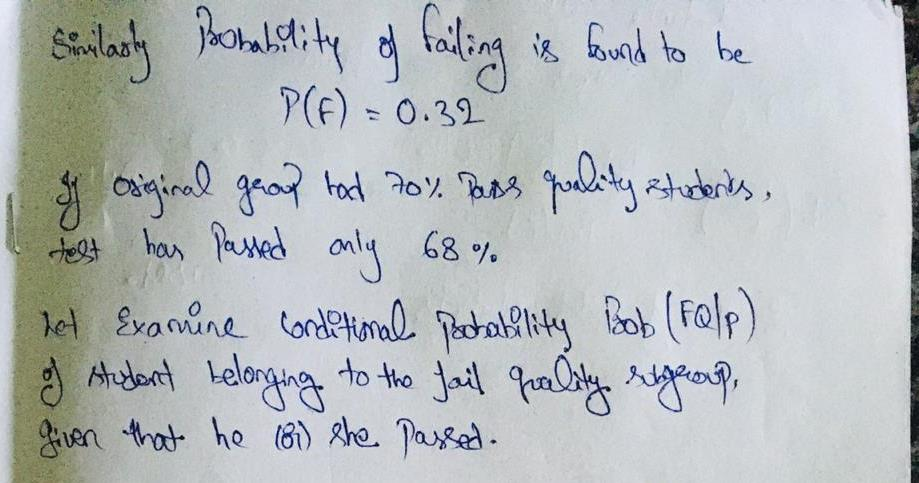 Similarly Probability of failing is found to be
P(F) = 0.32
If original group had 70% Pass quality students,
test has Passed only 68%
Let Examine Conditional Probability Prob (FQ/P)
of student belonging to the fail quality subgroup,
given that he (or) she Passed.